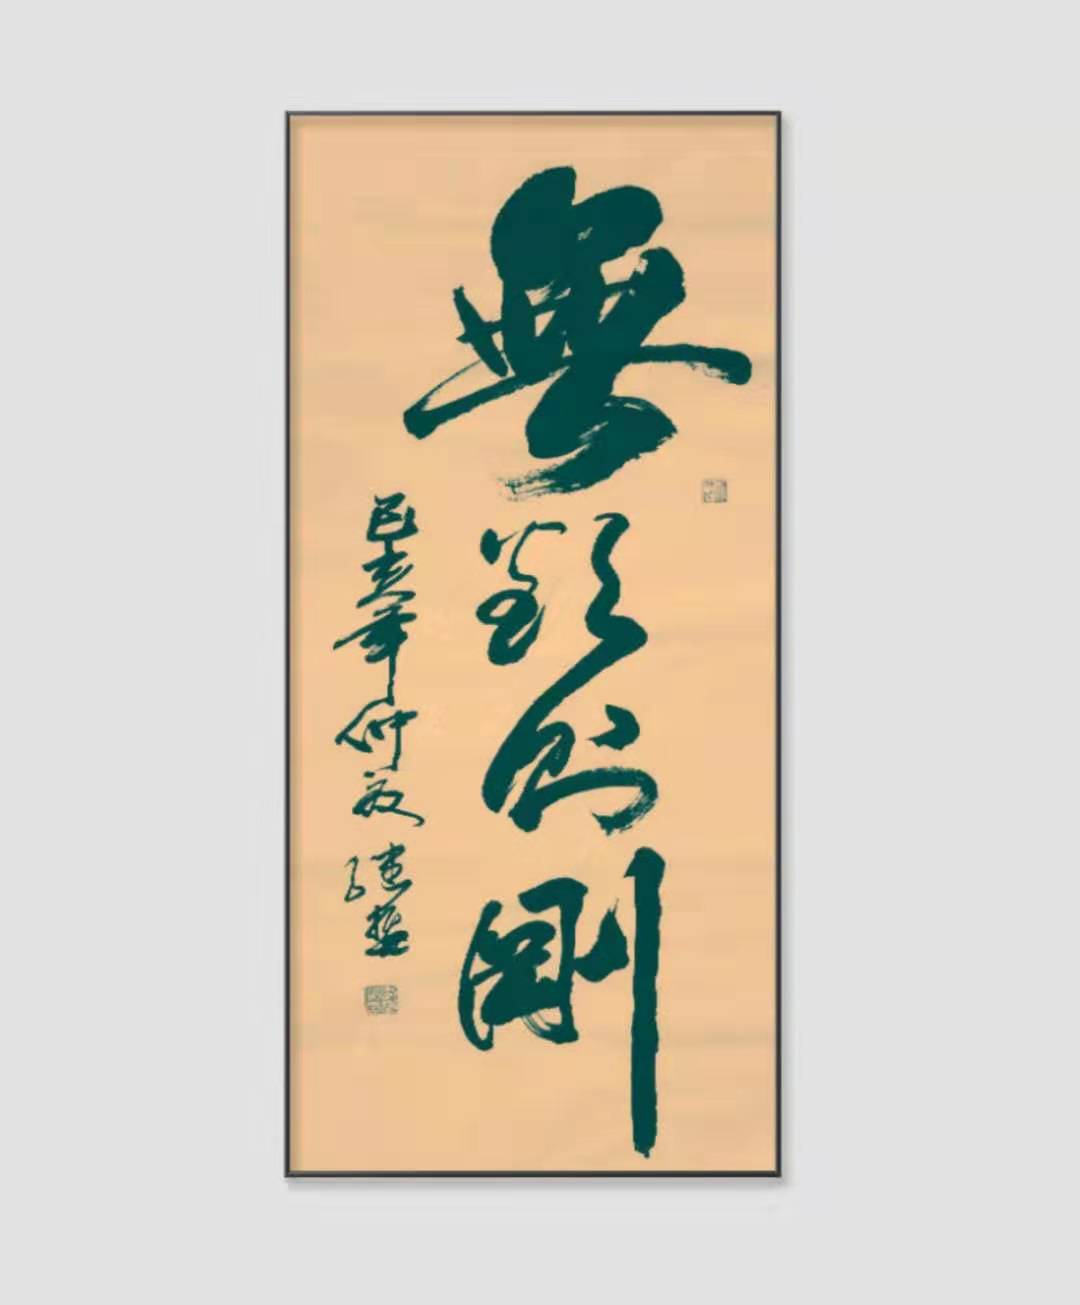 無欲則剛
己亥年仲夏继哲